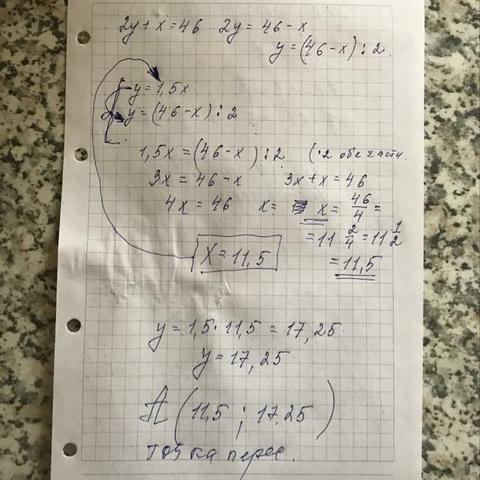 2y + x = 46 2y = 46 - x
y = (46 - x) : 2
y = 1,5x
y = (46 - x) : 2
1,5x = (46 - x) : 2 (·2 обе части
3x = 46 - x 3x + x = 46
4x = 46 x = x = 46/4 =
= 11 2/4 = 11 1/2
X = 11,5 = 11,5
y = 1,5 · 11,5 = 17,25
y = 17,25
A (11,5 ; 17,25)
точка перес.